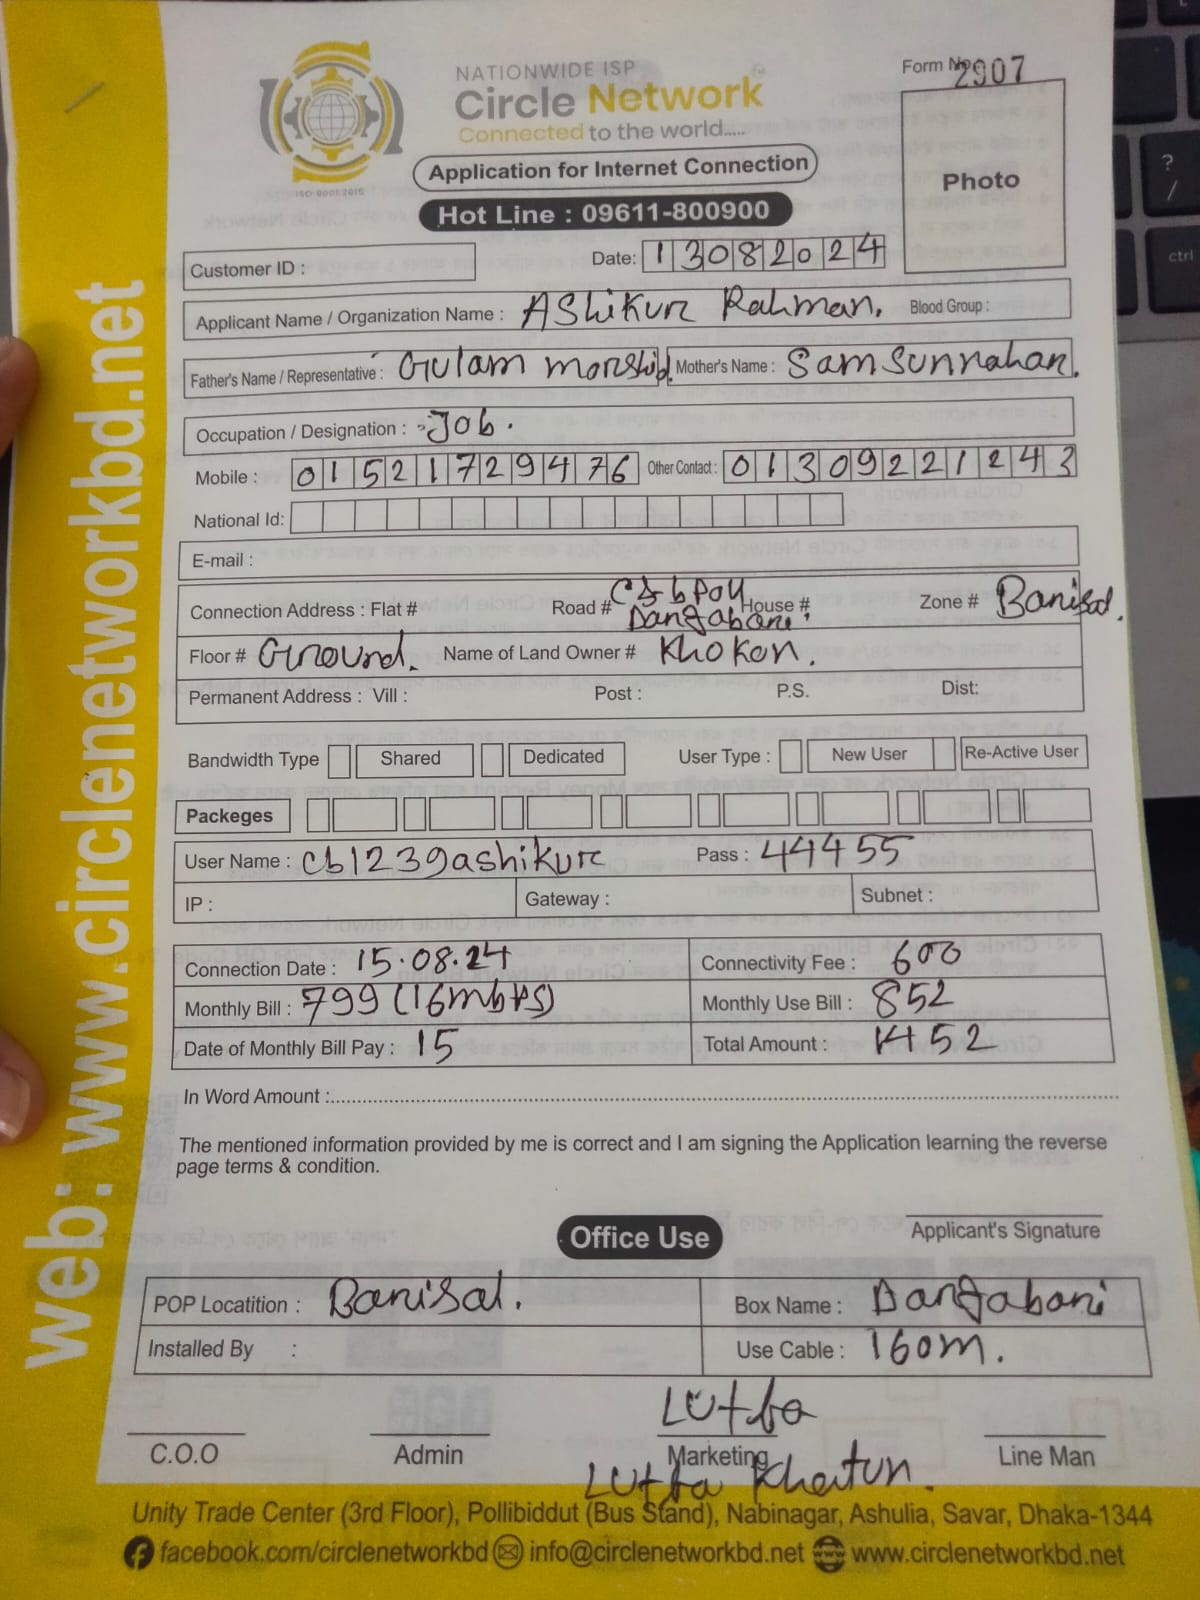 web: www.circlenetworkbd.net
ISO 9001:2015
NATIONWIDE ISP
Circle Network
Connected to the world.....
Application for Internet Connection
Hot Line : 09611-800900
Form No 2907
Photo
Customer ID :
Date: 13082024
Applicant Name / Organization Name : Ashikur Rahman. Blood Group :
Father's Name / Representative : Gulam morshid. Mother's Name : Samsunnahar.
Occupation / Designation : Job.
Mobile : 01521729476 Other Contact : 01309221243
National Id:
E-mail :
Connection Address : Flat # Road # C&b Poll Dangabari House # Zone # Barisal.
Floor # Ground. Name of Land Owner # Khokon.
Permanent Address : Vill : Post : P.S. Dist:
Bandwidth Type Shared Dedicated User Type : New User Re-Active User
Packeges
User Name : cb1239ashikur Pass : 44455
IP : Gateway : Subnet :
Connection Date : 15.08.24 Connectivity Fee : 600
Monthly Bill : 799 (16mbps) Monthly Use Bill : 852
Date of Monthly Bill Pay : 15 Total Amount : 1452
In Word Amount :
The mentioned information provided by me is correct and I am signing the Application learning the reverse
page terms & condition.
Applicant's Signature
Office Use
POP Locatition : Barisal. Box Name : Dangabari
Installed By : Use Cable : 160m.
Lutfa
C.O.O Admin Marketing Line Man
Lutfa Khatun.
Unity Trade Center (3rd Floor), Pollibiddut (Bus Stand), Nabinagar, Ashulia, Savar, Dhaka-1344
facebook.com/circlenetworkbd info@circlenetworkbd.net www.circlenetworkbd.net
?
/
ctrl